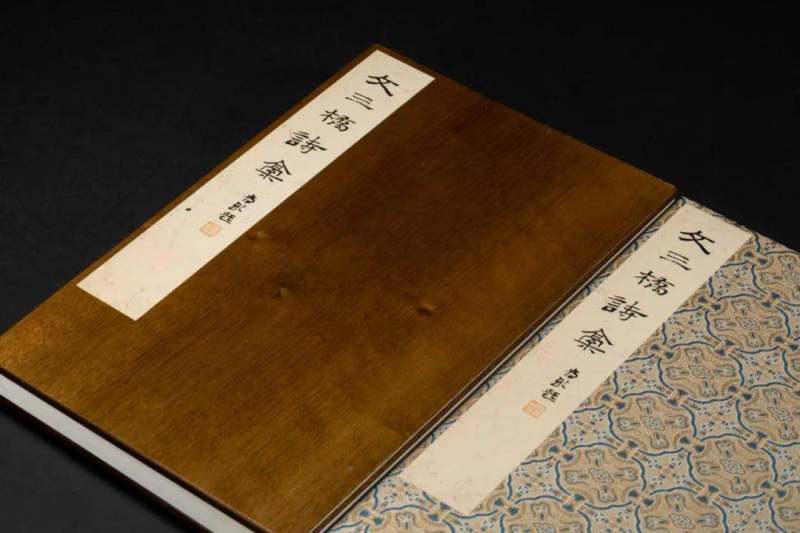 文三橋詩彙
文三橋詩彙